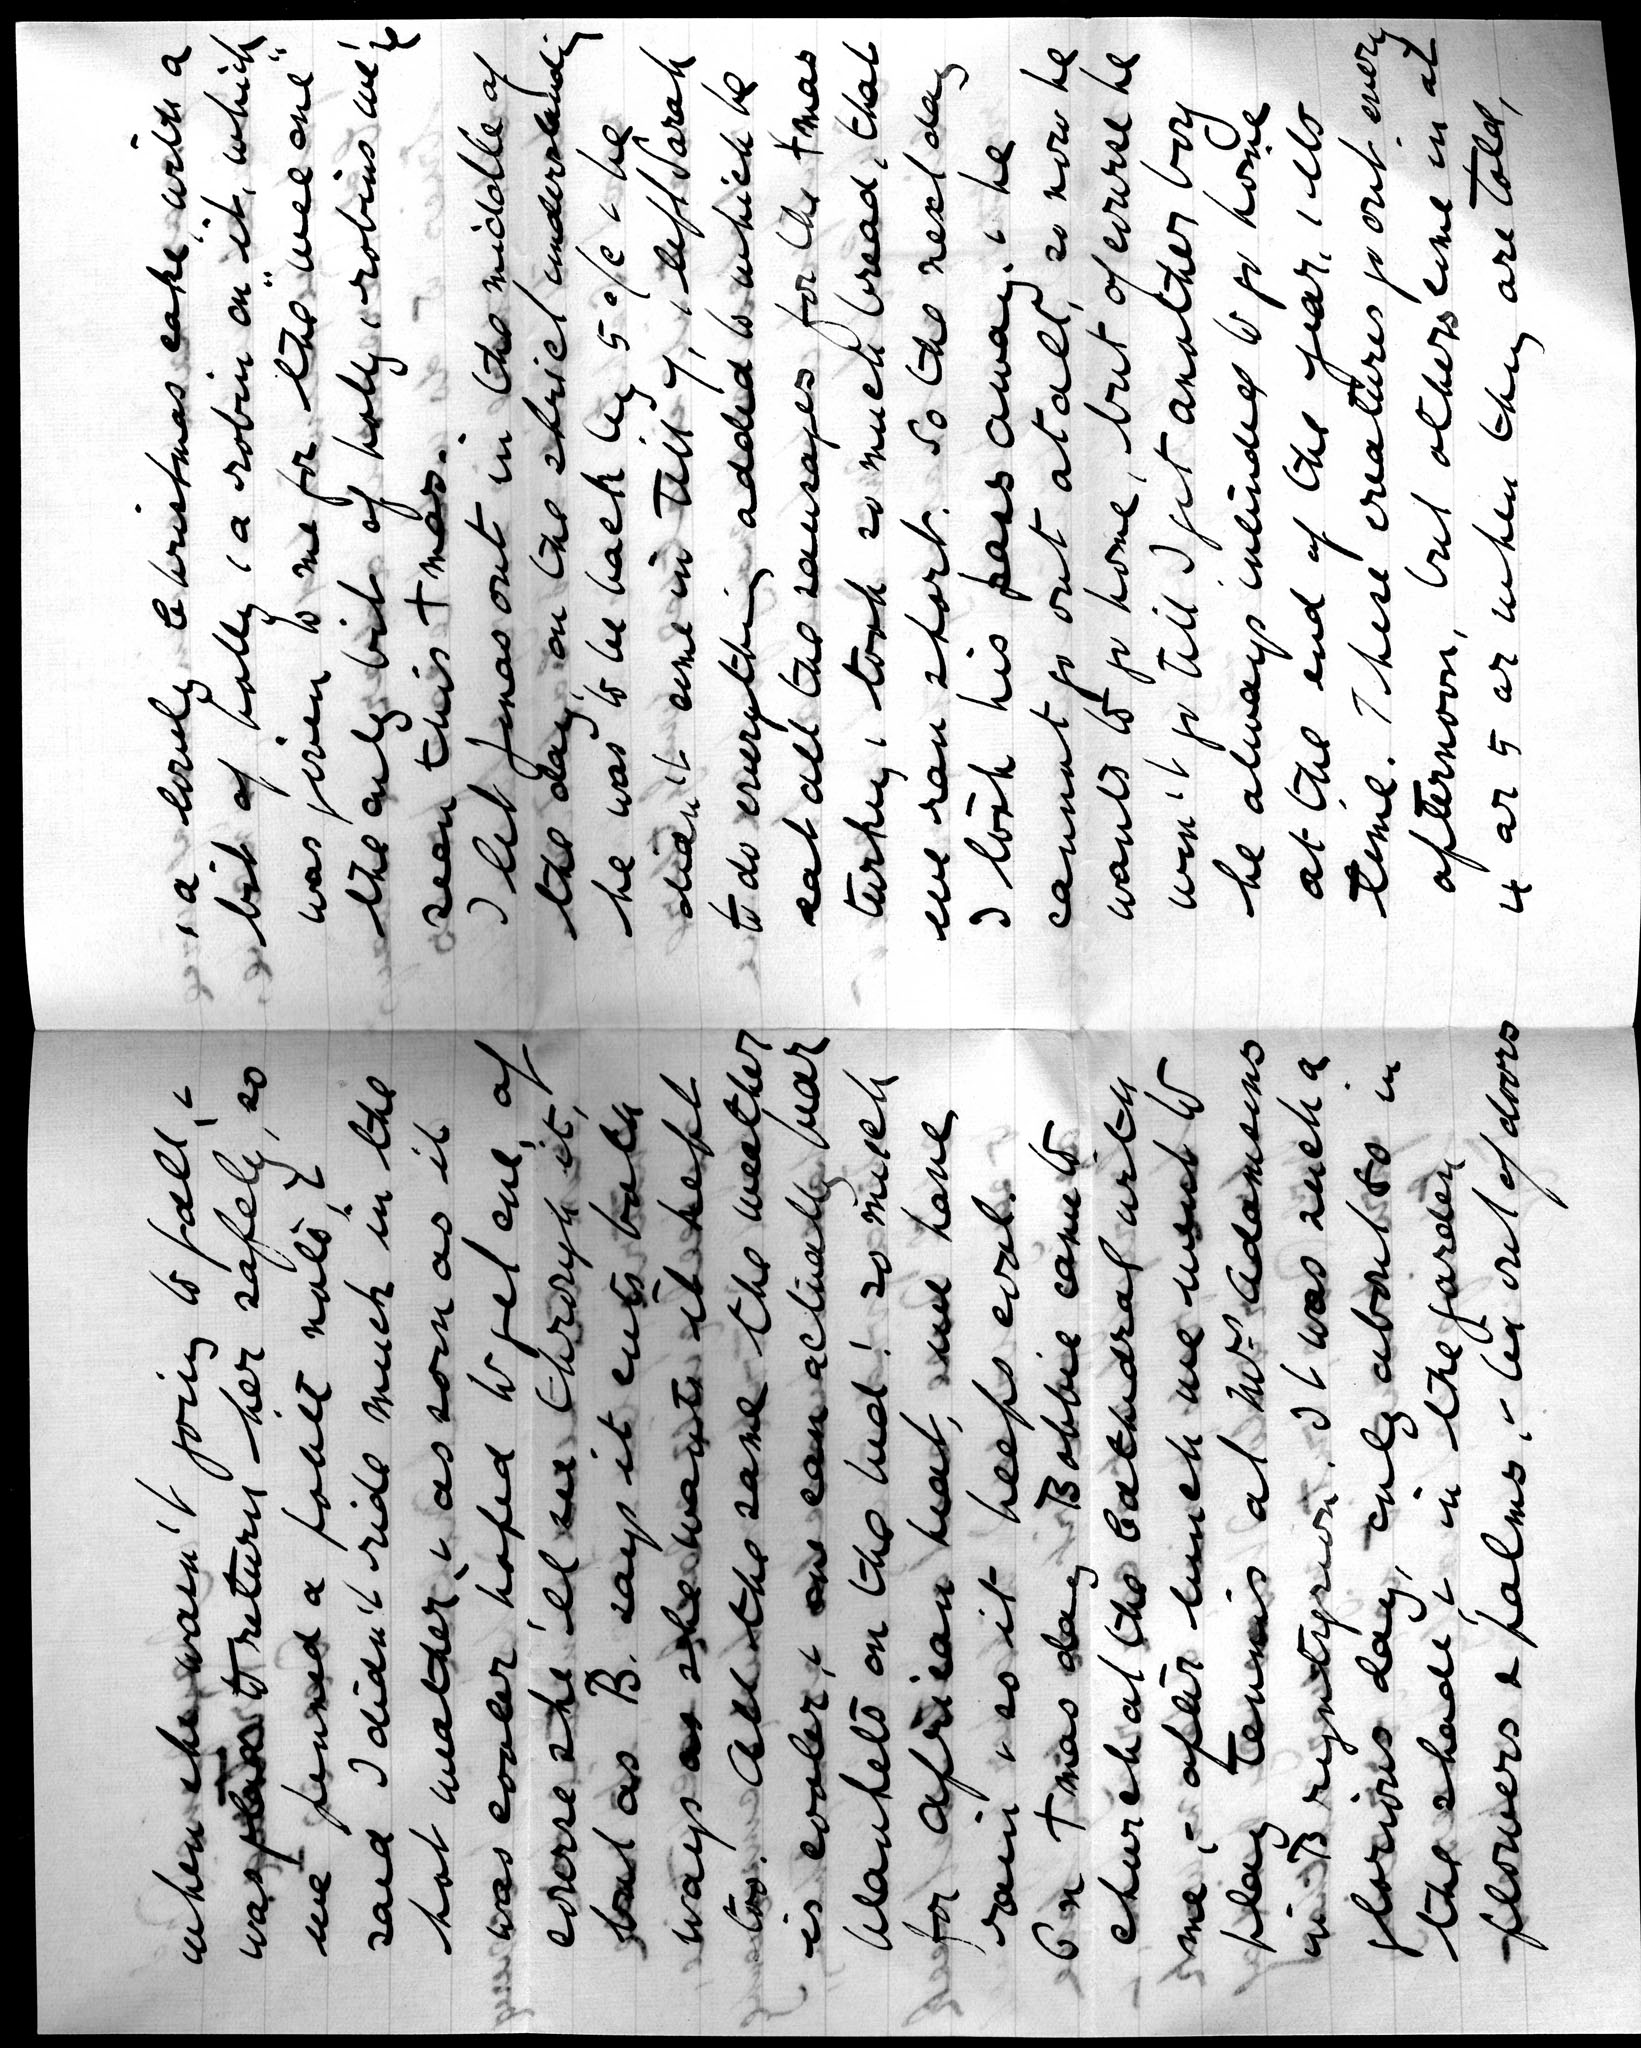 when she wasn't going to fall, &
was glad to return her safely, so
we penned a polite note, &
said I didn't ride much in the
hot weather, & as soon as it
was cooler hoped to get one, of
course she'll see through it,
but as B. says it cuts both
ways as she wants it kept
too. All the same the weather
is cooler, & one can actually bear
blankets on the bed! so much
for African heat, we have
rain & so it keeps cool.
On Xmas day Bobbie came to
church at the Cathedral with
me, & after lunch we went to
play tennis at Mrs Adamsons
in B
glorious day, only about 80 in
the shade, & in the garden
flowers & palms, & tea out of doors
, a lovely Christmas cake with a
bit of holly, (a robin on it, which
was given to me for "the wee one"
the only bit of holly, robins we've
seen this Xmas.
I let Jonas out in the middle of
the day, on the strict understanding
he was to be back by 5 o/c & he
didn't come in till 9, & left Sarah
to do everything added to which he
eat all the sausages for the Xmas
turkey, & took so much bread, that
we ran short. So the next day
I took his pass away, & he
cannot go out at all, so now he
wants to go home, but of course he
won't go till I get another boy
he always intended to go home
at the end of the year, its
time. These creatures go out every
afternoon, but others come in at
4 or 5 or when they are told,